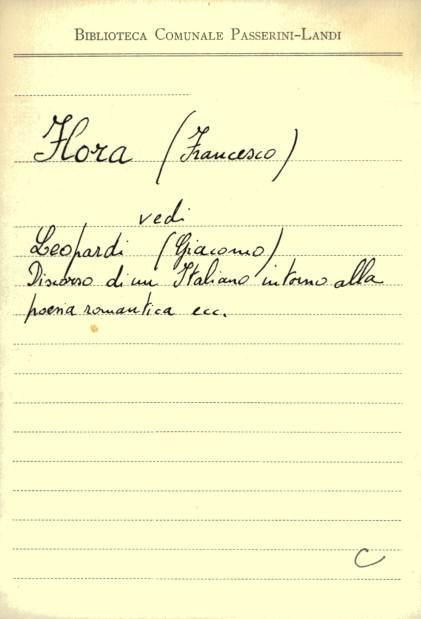 BIBLIOTECA COMUNALE PASSERINI-LANDI
Flora (Francesco)
vedi
Leopardi (Giacomo)
Discorso di un Italiano intorno alla
poesia romantica ecc.
C